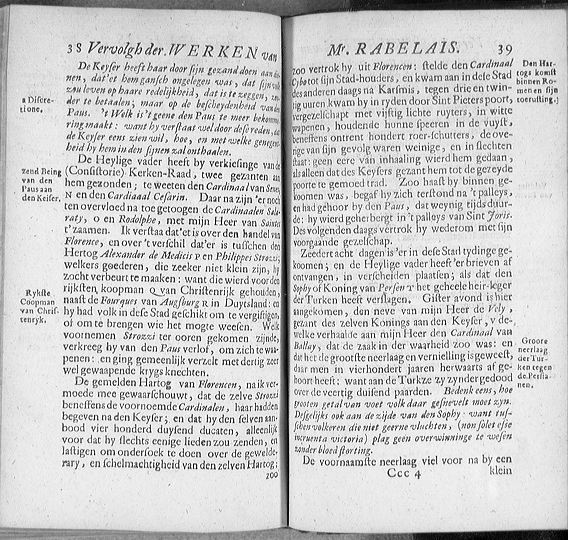 38 Vervolgh der WERKEN van
De Keyser heeft haar door sijn gezand doen aan die-
nen, dat'et hem gansch ongelegen was, dat sijn volk
zou leven op haare redelijkheid, dat is te zeggen, zon-
der te betaalen; maar op de bescheydenheid van den
a Discre-
tione,
Paus. 't Welk is 't geene den Paus te meer bekomme-
ring maakt: want hy verstaat wel door dese reden, dat
de Keyser eens zien wil, hoe, en met welke genegent-
heid hy hem in den sijnen zal onthaalen.
De Heylige vader heeft by verkiesinge van de
zend Reing
van den
Paus aan
den Keiser.
(Consistorie) Kerken-Raad, twee gezanten aan
hem gezonden; te weeten den Cardinaal van Senen
N en den Cardinaal Cesarin. Daar na zijn 'er noch
ten overvloed na toe getoogen de Cardinaalen Salu-
raty, O en Rodolphe, met mijn Heer van Saintes
t'zaamen. Ik verstaa dat'et is over den handel van
Florence, en over 't verschil dat'er is tusschen den
Hertog Alexander de Medicis P en Philippes Strozzi,
welkers goederen, die zeeker niet klein zijn, hy
zocht verbeurt te maaken: want die wierd voor den
Rykste
Coopman
van Chris-
tenryk.
rijksten koopman Q van Christenrijk gehouden,
naast de Fourques van Augsburg R in Duytsland: en
hy had volk in dese Stad geschikt om te vergiftigen,
of om te brengen wie het mogte weesen. Welk
voornemen Strozzi ter ooren gekomen zijnde,
verkreeg hy van den Paus verlof, om zich te wa-
penen: en ging gemeenlijk verzelt met dertig zeer
wel gewaapende krygs knechten.
De gemelden Hartog van Florencen, na ik ver-
moede mee gewaarschouwt, dat de zelve Strozzi
beneffens de voornoemde Cardinalen, haar hadden
begeven na den Keyser; en dat hy den selven aan-
bood vier honderd duysend ducaten, alleenlijk
voor dat hy slechts eenige lieden zou zenden, en
lastigen om ondersoek te doen over de gewelde-
rary, en schelmachtigheid van den zelven Hartog;
zoo

Mr. RABELAIS. 39
zoo vertrok hy uit Florencen: stelde den Cardinaal
Cybo tot sijn Stad-houders, en kwam aan in dese Stad
Den Har-
togs komst
binnen Ro-
men en sijn
toerusting.
des anderen daags na Karsmis, tegen drie en twin-
tig uuren kwam hy in ryden door Sint Pieters poort,
vergezelschapt met vijftig lichte ruyters, in witte
wapenen, houdende hunne speeren in de vuyst,
beneffens ontrent hondert roer-schutters, de ove-
rige van sijn gevolg waren weinige, en in slechten
staat: geen eere van inhaaling wierd hem gedaan,
als alleen dat des Keysers gezant hem tot de gezeyde
poorte te gemoed trad. Zoo haast hy binnen ge-
koomen was, begaf hy zich terstond na 't palleys,
en had gehoor by den Paus, dat weynig tijds duur-
de: hy wierd geherbergt in 't palleys van Sint Joris.
Des volgenden daags vertrok hy wederom met sijn
voorgaande gezelschap.
Zeedert acht dagen is 'er in dese Stad tydinge ge-
koomen; en de Heylige vader heeft 'er brieven af
ontvangen, in verscheiden plaatsen; als dat den
Sophy of Koning van Persen T het geheele heir-leger
der Turken heeft verslagen. Gister avond is hier
aangekomen, den neve van mijn Heer de Vely,
gezant des zelven Konings aan den Keyser, v de-
welke verhaalde aan mijn Heer den Cardinaal van
Groore
neerlaag
der Tur-
ken tegen
de Persia-
nen.
Bellay, dat de zaak in der waarheid zoo was: en
dat het de grootste neerlaag en vernielling is geweest,
daar men in vierhondert jaaren herwaarts af ge-
hoort heeft: want aan de Turkze zy zyn der gedood
over de veertig duisend paarden. Bedenk eens, hoe
grooten getal van voet volk daar gesnevelt moet zyn.
Desgelijkt ook aan de zijde van den Sophy: want tus-
schen volkeren die niet geerne vluchten, (non solet esse
incruenta victoria) plag geen overwinninge te wesen
zonder bloedstorting.
De voornaamste neerlaag viel voor na by een
Ccc 4 klein